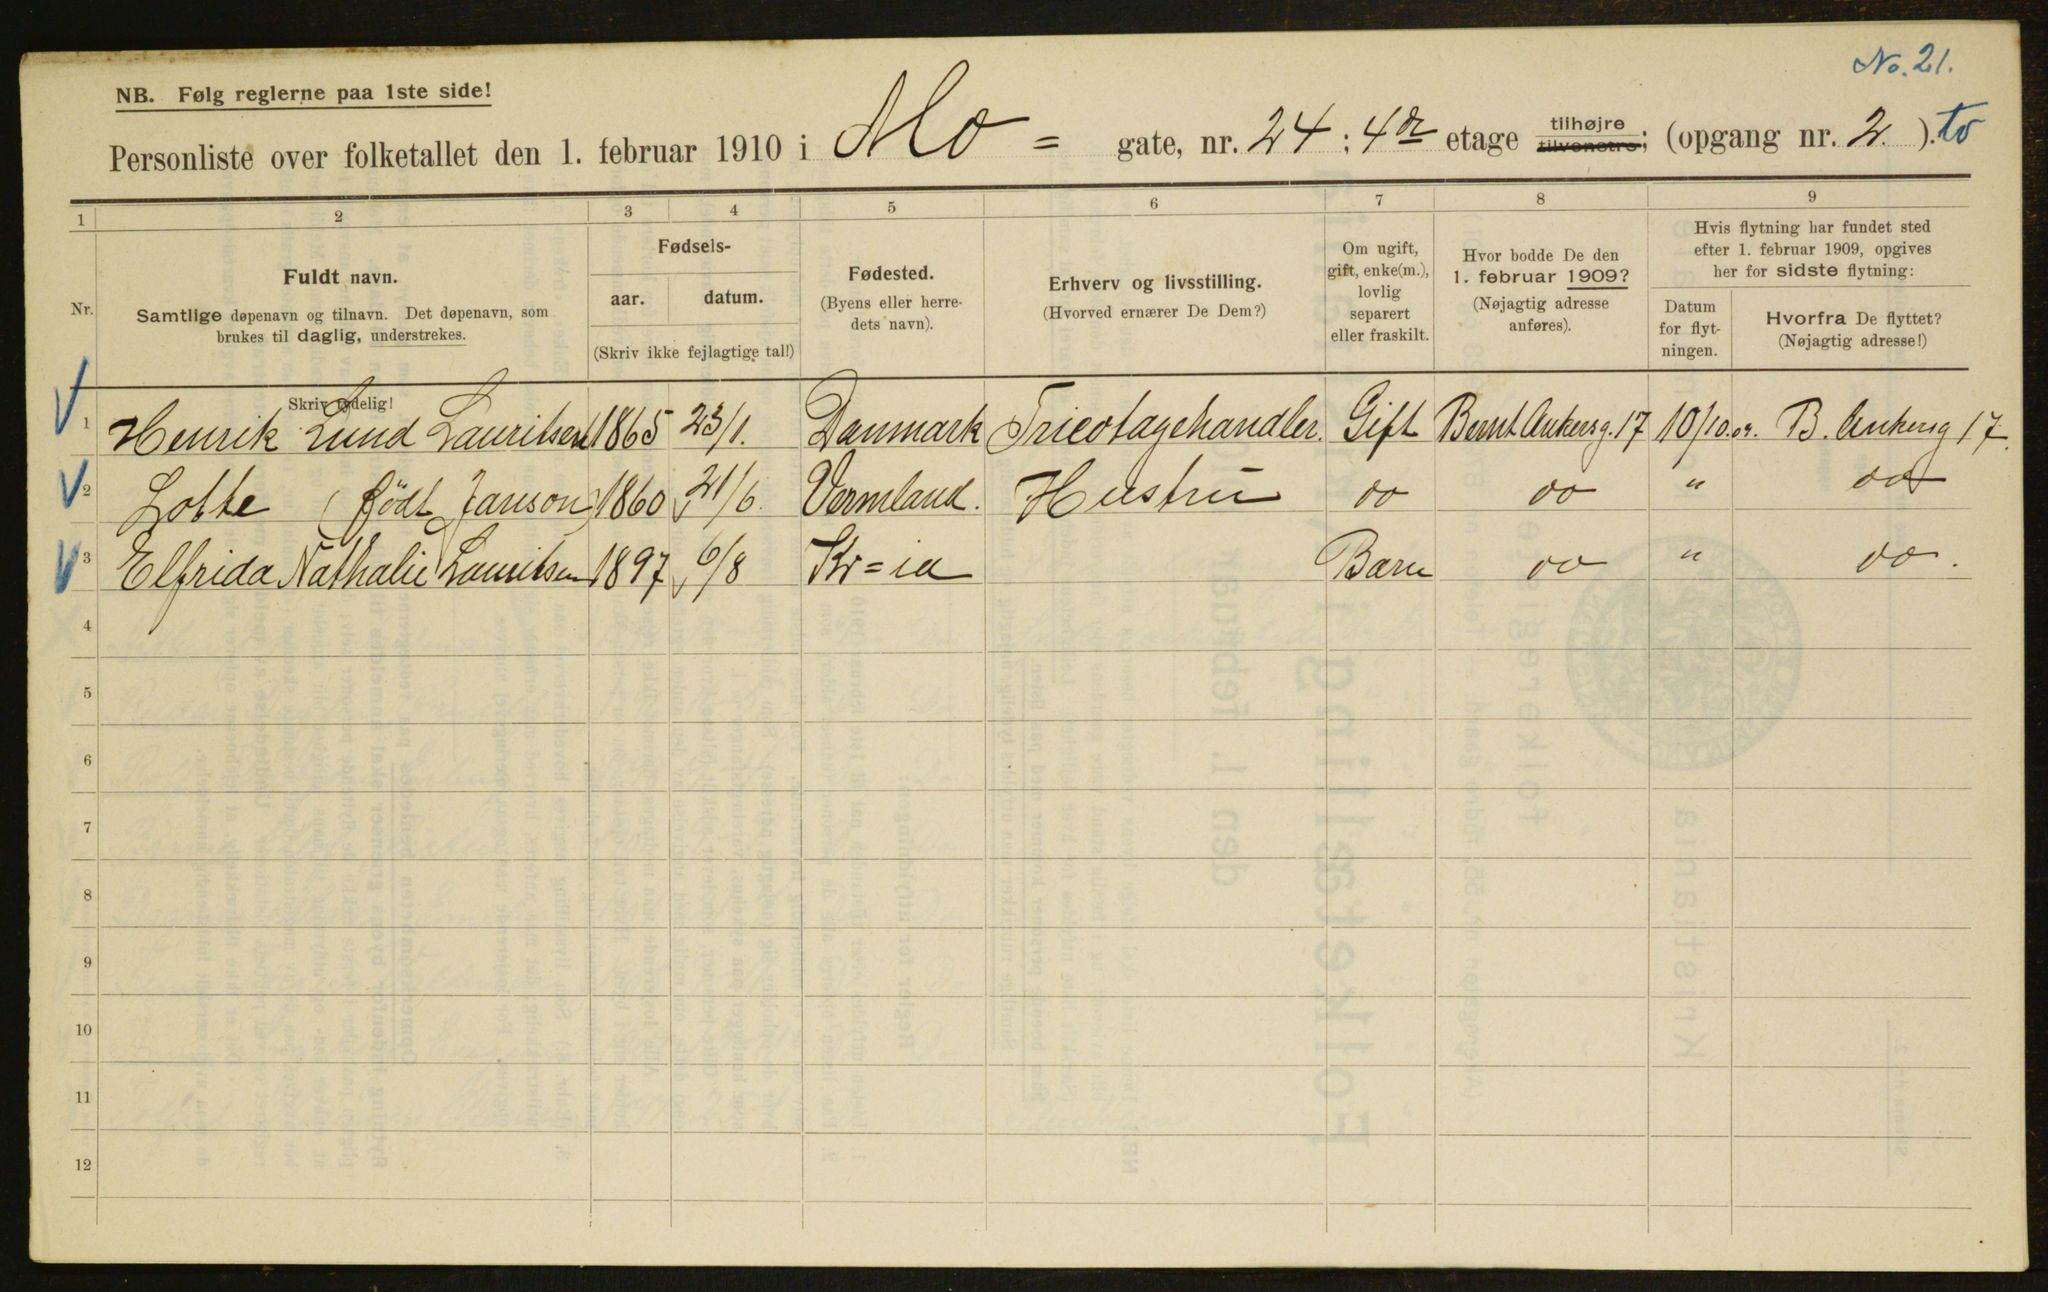 No. 21.
NB. Følg reglerne paa 1ste side!
Personliste over folketallet den 1. februar 1910 i Mo = gate, nr. 24 ; 4de etage tilhøjre tilvenstre; (opgang nr. 2. ). to
1 2 3 4 5 6 7 8 9
Nr.
Fuldt navn.
Samtlige døpenavn og tilnavn. Det døpenavn, som
brukes til daglig, understrekes.
Skriv tydelig!
Fødsels-
aar. datum.
(Skriv ikke fejlagtige tal!)
Fødested.
(Byens eller herre-
dets navn).
Erhverv og livsstilling.
(Hvorved ernærer De Dem?)
Om ugift,
gift, enke(m.),
lovlig
separert
eller fraskilt.
Hvor bodde De den
1. februar 1909?
(Nøjagtig adresse
anføres).
Hvis flytning har fundet sted
efter 1. februar 1909, opgives
her for sidste flytning:
Datum
for flyt-
ningen.
Hvorfra De flyttet?
(Nøjagtig adresse!)
1 Henrik Lund Lauritsen 1865 23/1. Danmark Tricotagehandler. Gift Bernt Ankersg. 17 10/10.09. B. Ankersg 17.
2 Lotte (født Janson) 1860 21/6. Vermland. Hustru oo oo " oo
3 Elfrida Nathalie Lauritsen 1897 6/8 Kr=ia Barn oo " oo.
4
5
6
7
8
9
10
11
12